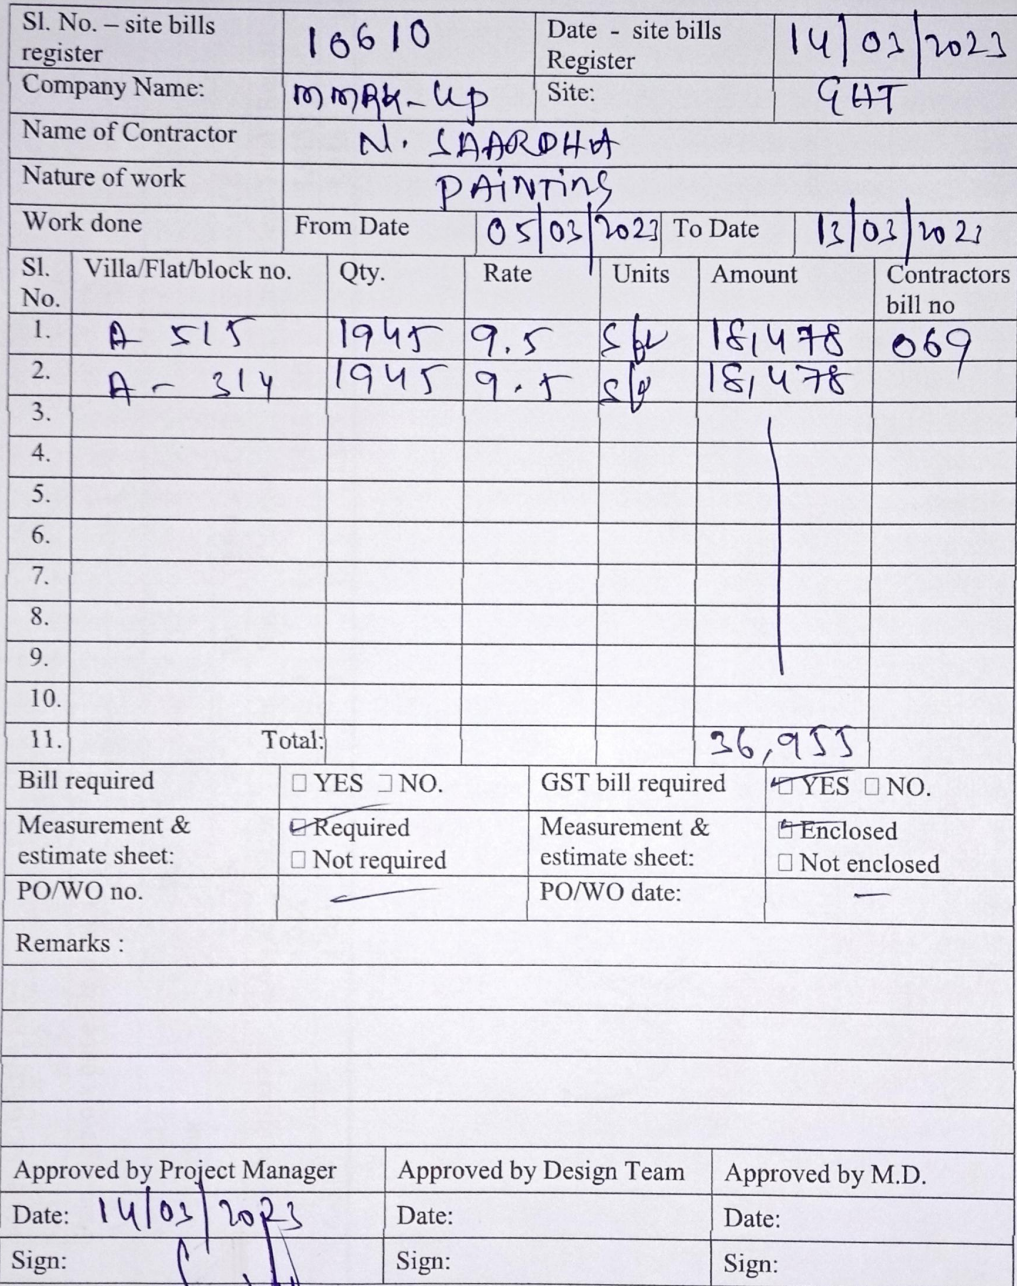 Sl. No. – site bills register 10610 Date - site bills Register 14/03/2023
Company Name: Site: GHT
Name of Contractor N. SAARDHA
Nature of work PAiNTing
Work done From Date 05/03/2023 To Date 13/03/2023
Sl. No. Villa/Flat/block no. Qty. Rate Units Amount Contractors bill no
1. A 515 1945 9.5 18,478 069
2. A - 314 1945 9.5 18,478
3.
4.
5.
6.
7.
8.
9.
10.
11. Total: 36,955
Bill required □ YES □ NO. GST bill required ☑ YES □ NO.
Measurement & estimate sheet: ☑ Required □ Not required Measurement & estimate sheet: ☑ Enclosed □ Not enclosed
PO/WO no. PO/WO date:
Remarks :
Approved by Project Manager Approved by Design Team Approved by M.D.
Date: 14/03/2023 Date: Date:
Sign: Sign: Sign: